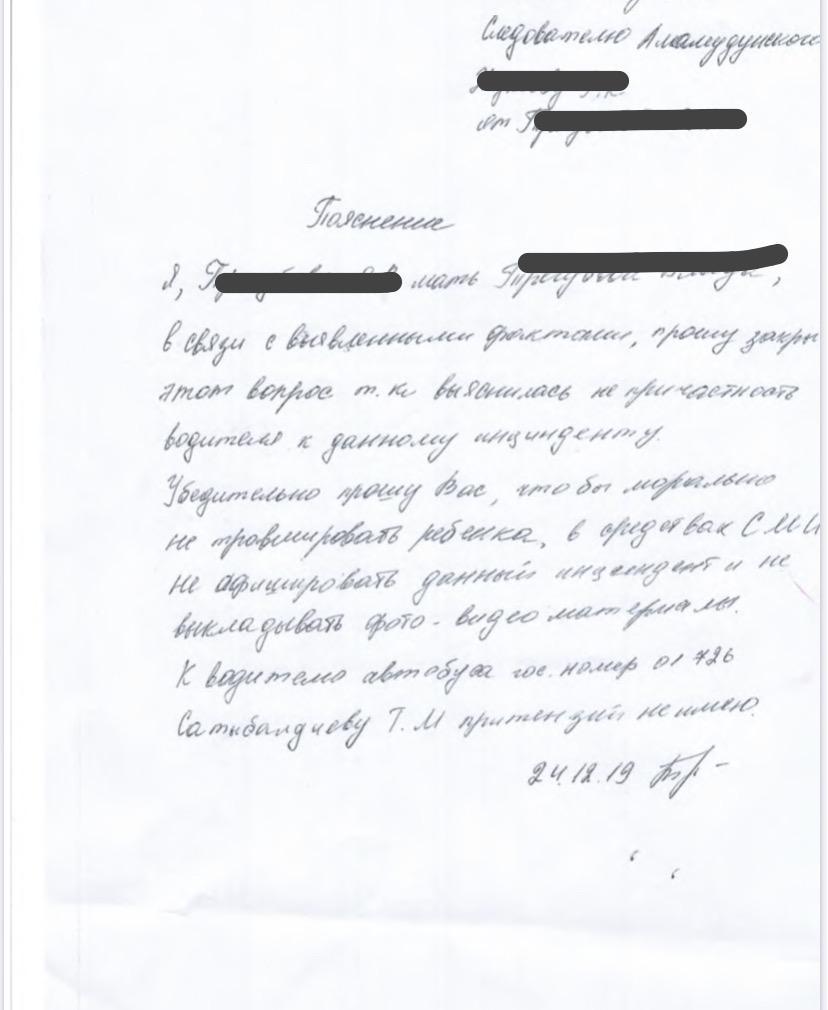 Следователю Аламудунского
от
Пояснение
Я, мать
в связи с выявленными фактами, прошу закры
этот вопрос т.к. выяснилась не причастность
водителя к данному инцинденту.
Убедительно прошу Вас, что бы морально
не травмировать ребенка, в средствах СМИ
не афишировать данный инциндент и не
выкладывать фото-видео материалы.
К водителю автобуса гос. номер 01 726
Сатыбалдиеву Т.М притензий не имею.
24.12.19